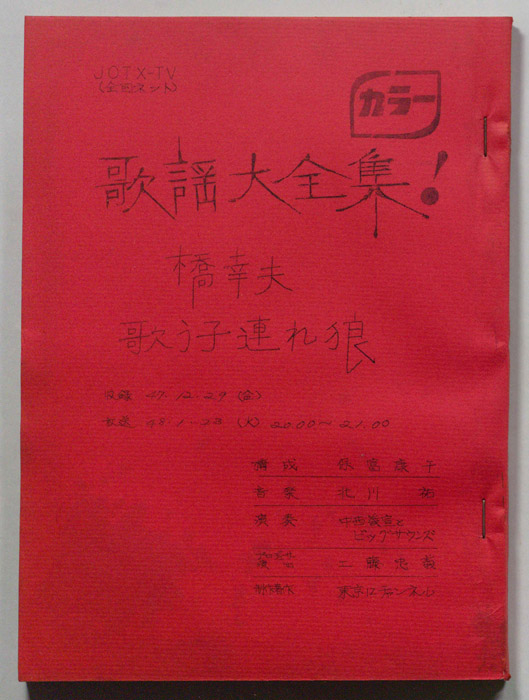 JOTX-TV
(全国ネット)
カラー
歌謡大全集!
橋幸夫
歌う子連れ狼
収録 47.12.29 (金)
放送 48.1.23 (火) 20.00〜21.00
構成 保富康午
音楽
演奏 と
ポップサウンズ
演出
制作 東京12チャンネル